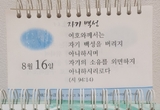 자기 백성
8월 16일
여호와께서는
자기 백성을 버리지
아니하시며
자기의 소유를 외면하지
아니하시리로다
(시 94:14)